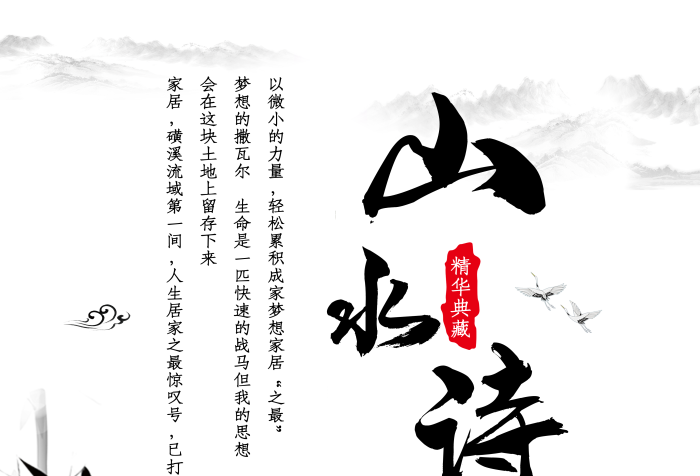 山水诗
精华典藏
以微小的力量，轻松累积成家梦想家居“之最”
梦想的撒瓦尔 生命是一匹快速的战马但我的思想
会在这块土地上留存下来
家居，磺溪流域第一间，人生居家之最惊叹号，已打